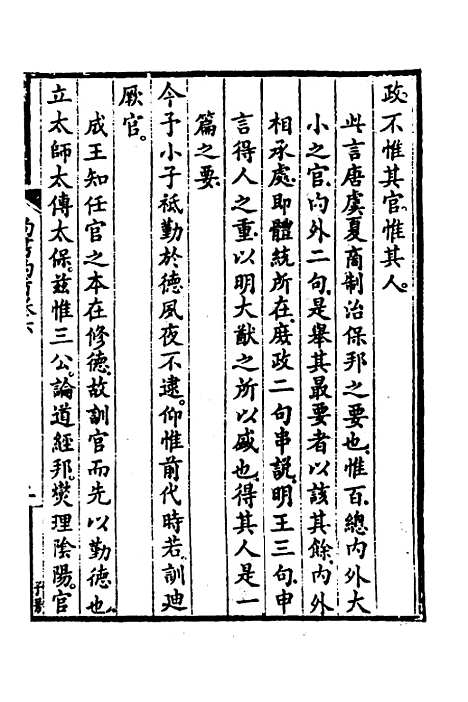 政不惟其官惟其人。
此言唐虞夏商制治保邦之要也惟百總內外大
小之官內外二句是舉其最要者以該其餘內外
相承處即體統所在庶政二句串說明王三句申
言得人之重以明大猷之所以盛也得其人是一
篇之要
今予小子祗勤於德夙夜不逮。仰惟前代時若訓迪
厥官。
成王知任官之本在修德故訓官而先以勤德也
立太師太傅太保。茲惟三公。論道經邦。燮理陰陽。官